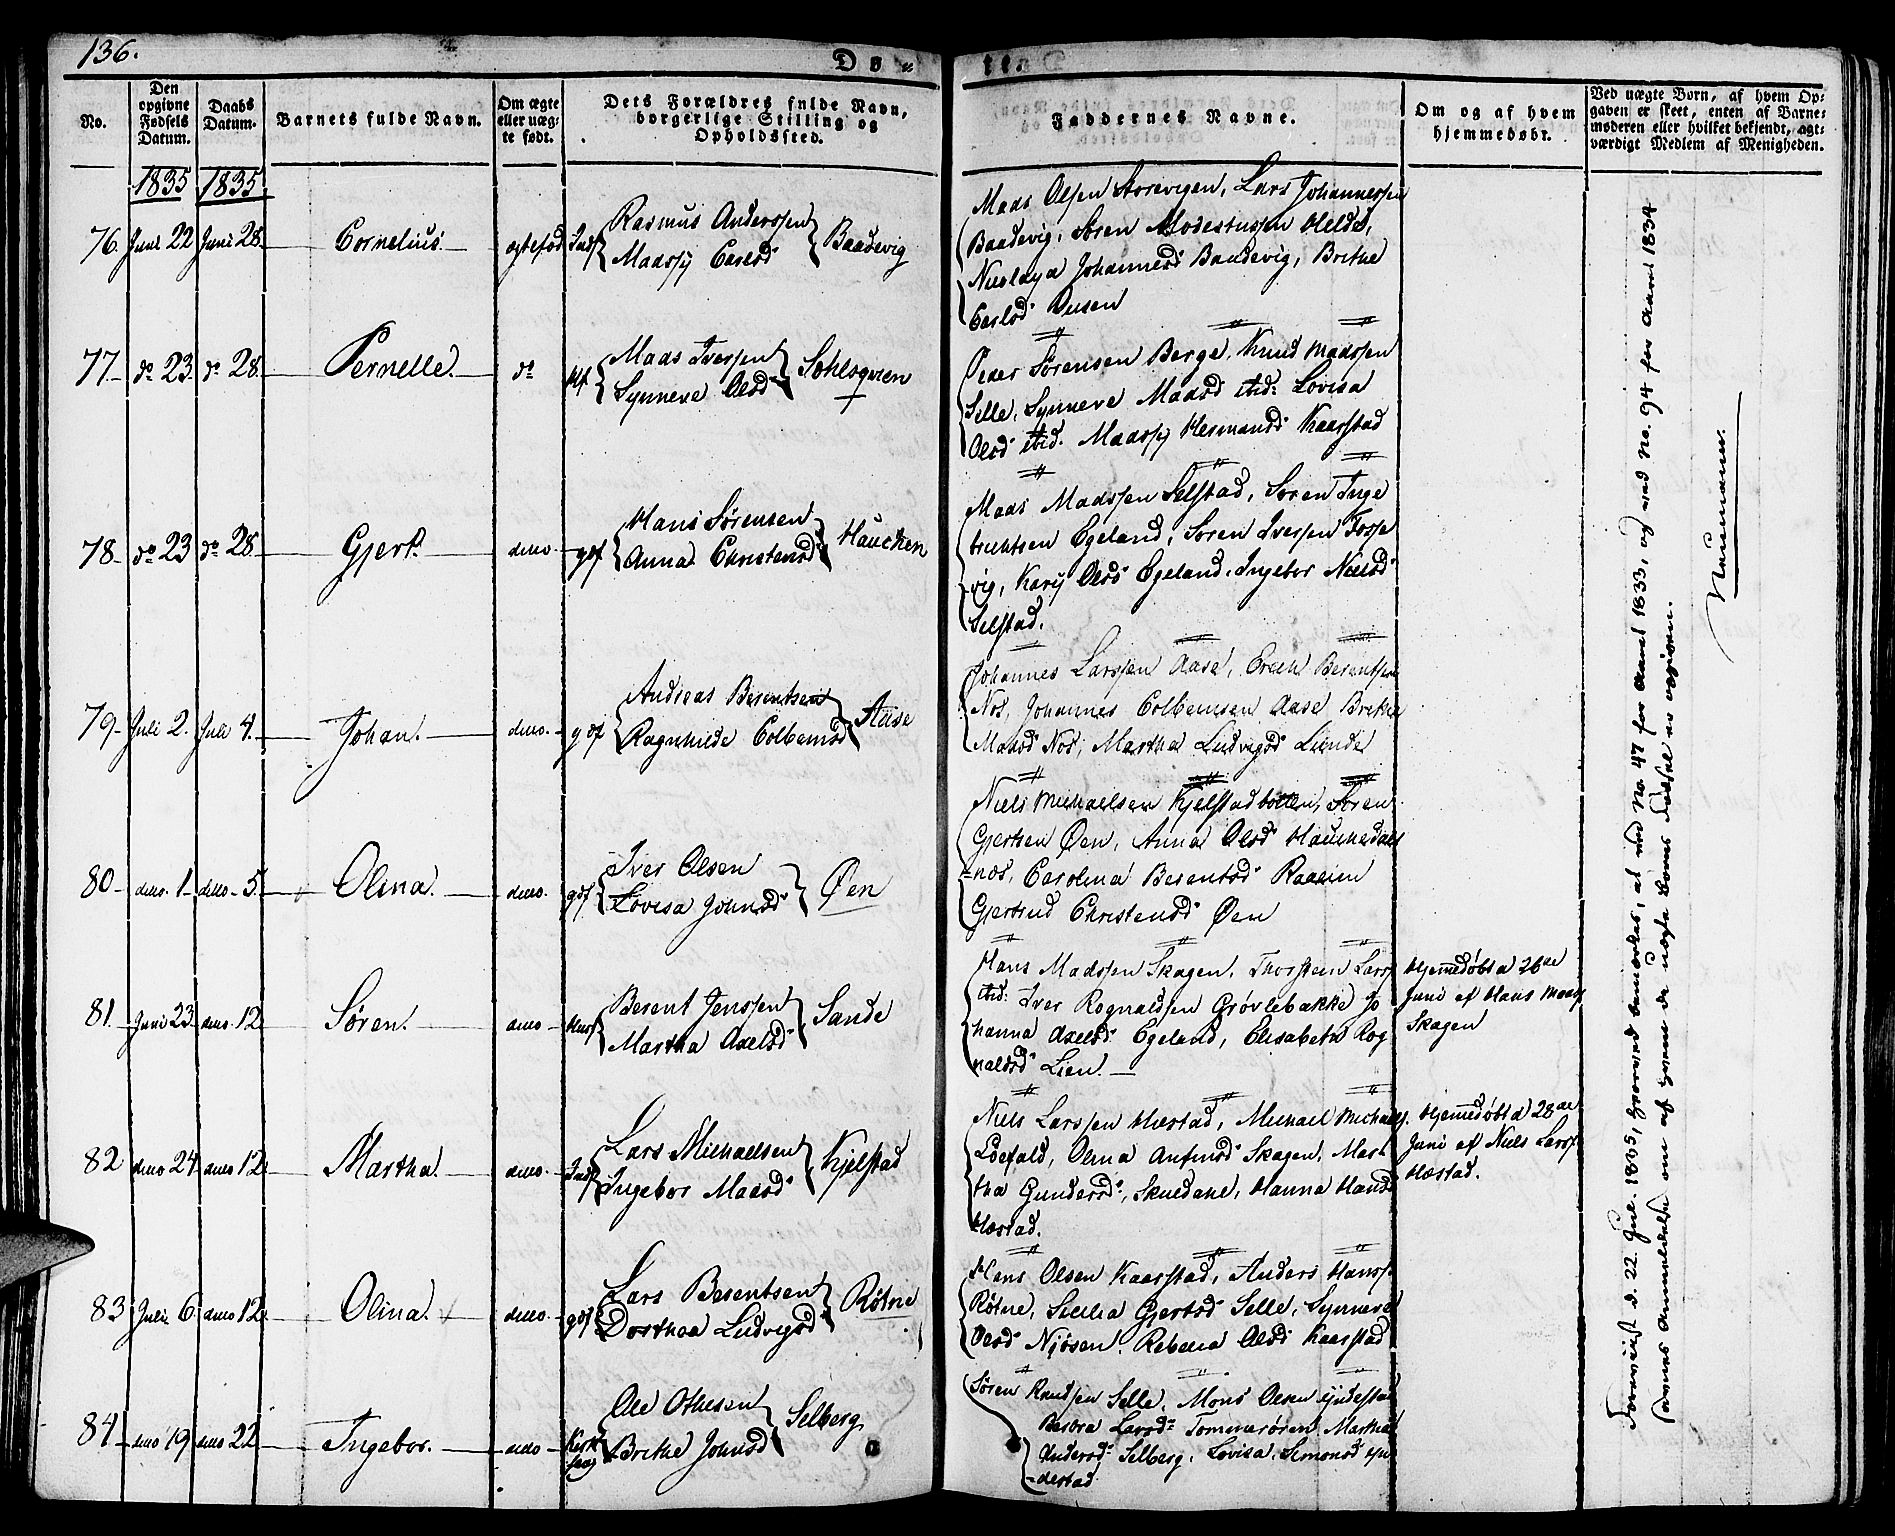 136.
Dø-
No.
Den opgivne Fødsels Datum.
Daabs Datum.
Barnets fulde Navn.
Om ægte eller uæg-te født.
Dets Forældres fulde Navn, borgerlige Stilling og Opholdssted.
Faddernes Navne.
Om og af hvem hjemmedøbt.
Ved uægte Børn, af hvem Op-
gaven er skeet, enten af Barne-
moderen eller hvilket bekjendt, agt-
værdigt Medlem af Menigheden.
1835 1835
76. Juni 22 Juni 28. Cornelius ægtefød Indf Rasmus Anderssen
Madssy Carlsd Baadevig
Mads Olsen Storevigen, Lars Johannessen
Baadevig, Søren Modestussen Helde,
Nicolaya Johannesd Baadevig, Brithe
Carlsd
77. do 23. do 28. Pernelle. do Mads Iverssen
Synneve Olsd
Peder Sørensen Berge, Knud Madssen
Selle, Synneve Madsd ibid: Lovisa
Olsd ibid. Madssy Hermansd Kaarstad
78. do 23 do 28 Gjert. dito gdf Hans Sørensen
Anna Christensd Hauchen
Mads Madssen Selstad, Søren Inge
brichtsen Egeland, Søren Iverssen Fosse
vig, Kary Olsd Egeland, Ingebor Nielsd
Selstad.
79. Juli 2. Juli 4. Johan. dito gdf Andreas Berentsen
Ragnhilde Colbensd Aase
Johannes Larssen Aase, Erich Berentsen
Nos, Johannes Colbensen Aase, Brithe
Madsd Nos, Martha Ludvigsd Lunde
80. dito 1. dito 5. Olina. dito. gdf Iver Olsen
Lovisa Johnsd Øen
Niels Michaelsen Kjelstadbotten, Søren
Gjertsen Øen, Anna Olsd Hauchedals
-nos, Carolina Berentsd
Gjertrud Christensd Øen
81. Juni 23. dito 12 Søren. dito Huusf Berent Jenssen
Martha Axelsd Sande
Hans Madssen Skagen, Thorstein Larss
ibid: Iver Rognaldsen Grøvlebakke Jo
hanna Axelsd Egeland, Elisabeth Rog
naldsd Lien.
Hjemmedøbt d 26de
Juni af Hans Mads
Skagen
82 dito 24 dito 12 Martha. dito. Indf Lars Michaelsen
Ingebor Madsd Kjelstad
Niels Larssen Hæstad, Michael Michaels.
Ldefald, Olina Anfinsd Skagen, Mar
tha Gundersd, Hanna Hansd
Hæstad.
Hjemmedøbt d 28de
Juni af Niels Larss
Hæstad.
83 Juli 6. dito 12. Olina. dito. gdf Lars Berentsen
Dorthea Ludvigsd Røtne
Hans Olsen Kaarstad, Anders Hanss.
Røtne, Sicilia Gjertsd Selle, Synneve
Olsd Njøsen, Rebecca Olsd Kaarstad
84 dito 19. dito 22. Ingebor. dito Ole Othesen
Brithe Johnsd Selberg
Søren Knudsen Selle, Mons Olsen
Larsd Tommerøren, Martha
Andersd Selberg, Lovisa, Simonsd
destad
Foreviist d. 22. 1835, hvorved bemærkes, at ved No. 47 for Aaret 1833, og ved No. 94 for Aaret 1834
savnes Anmeldelse om af hvem de uægte Børns Fødsel er opgiven.
Neumann.